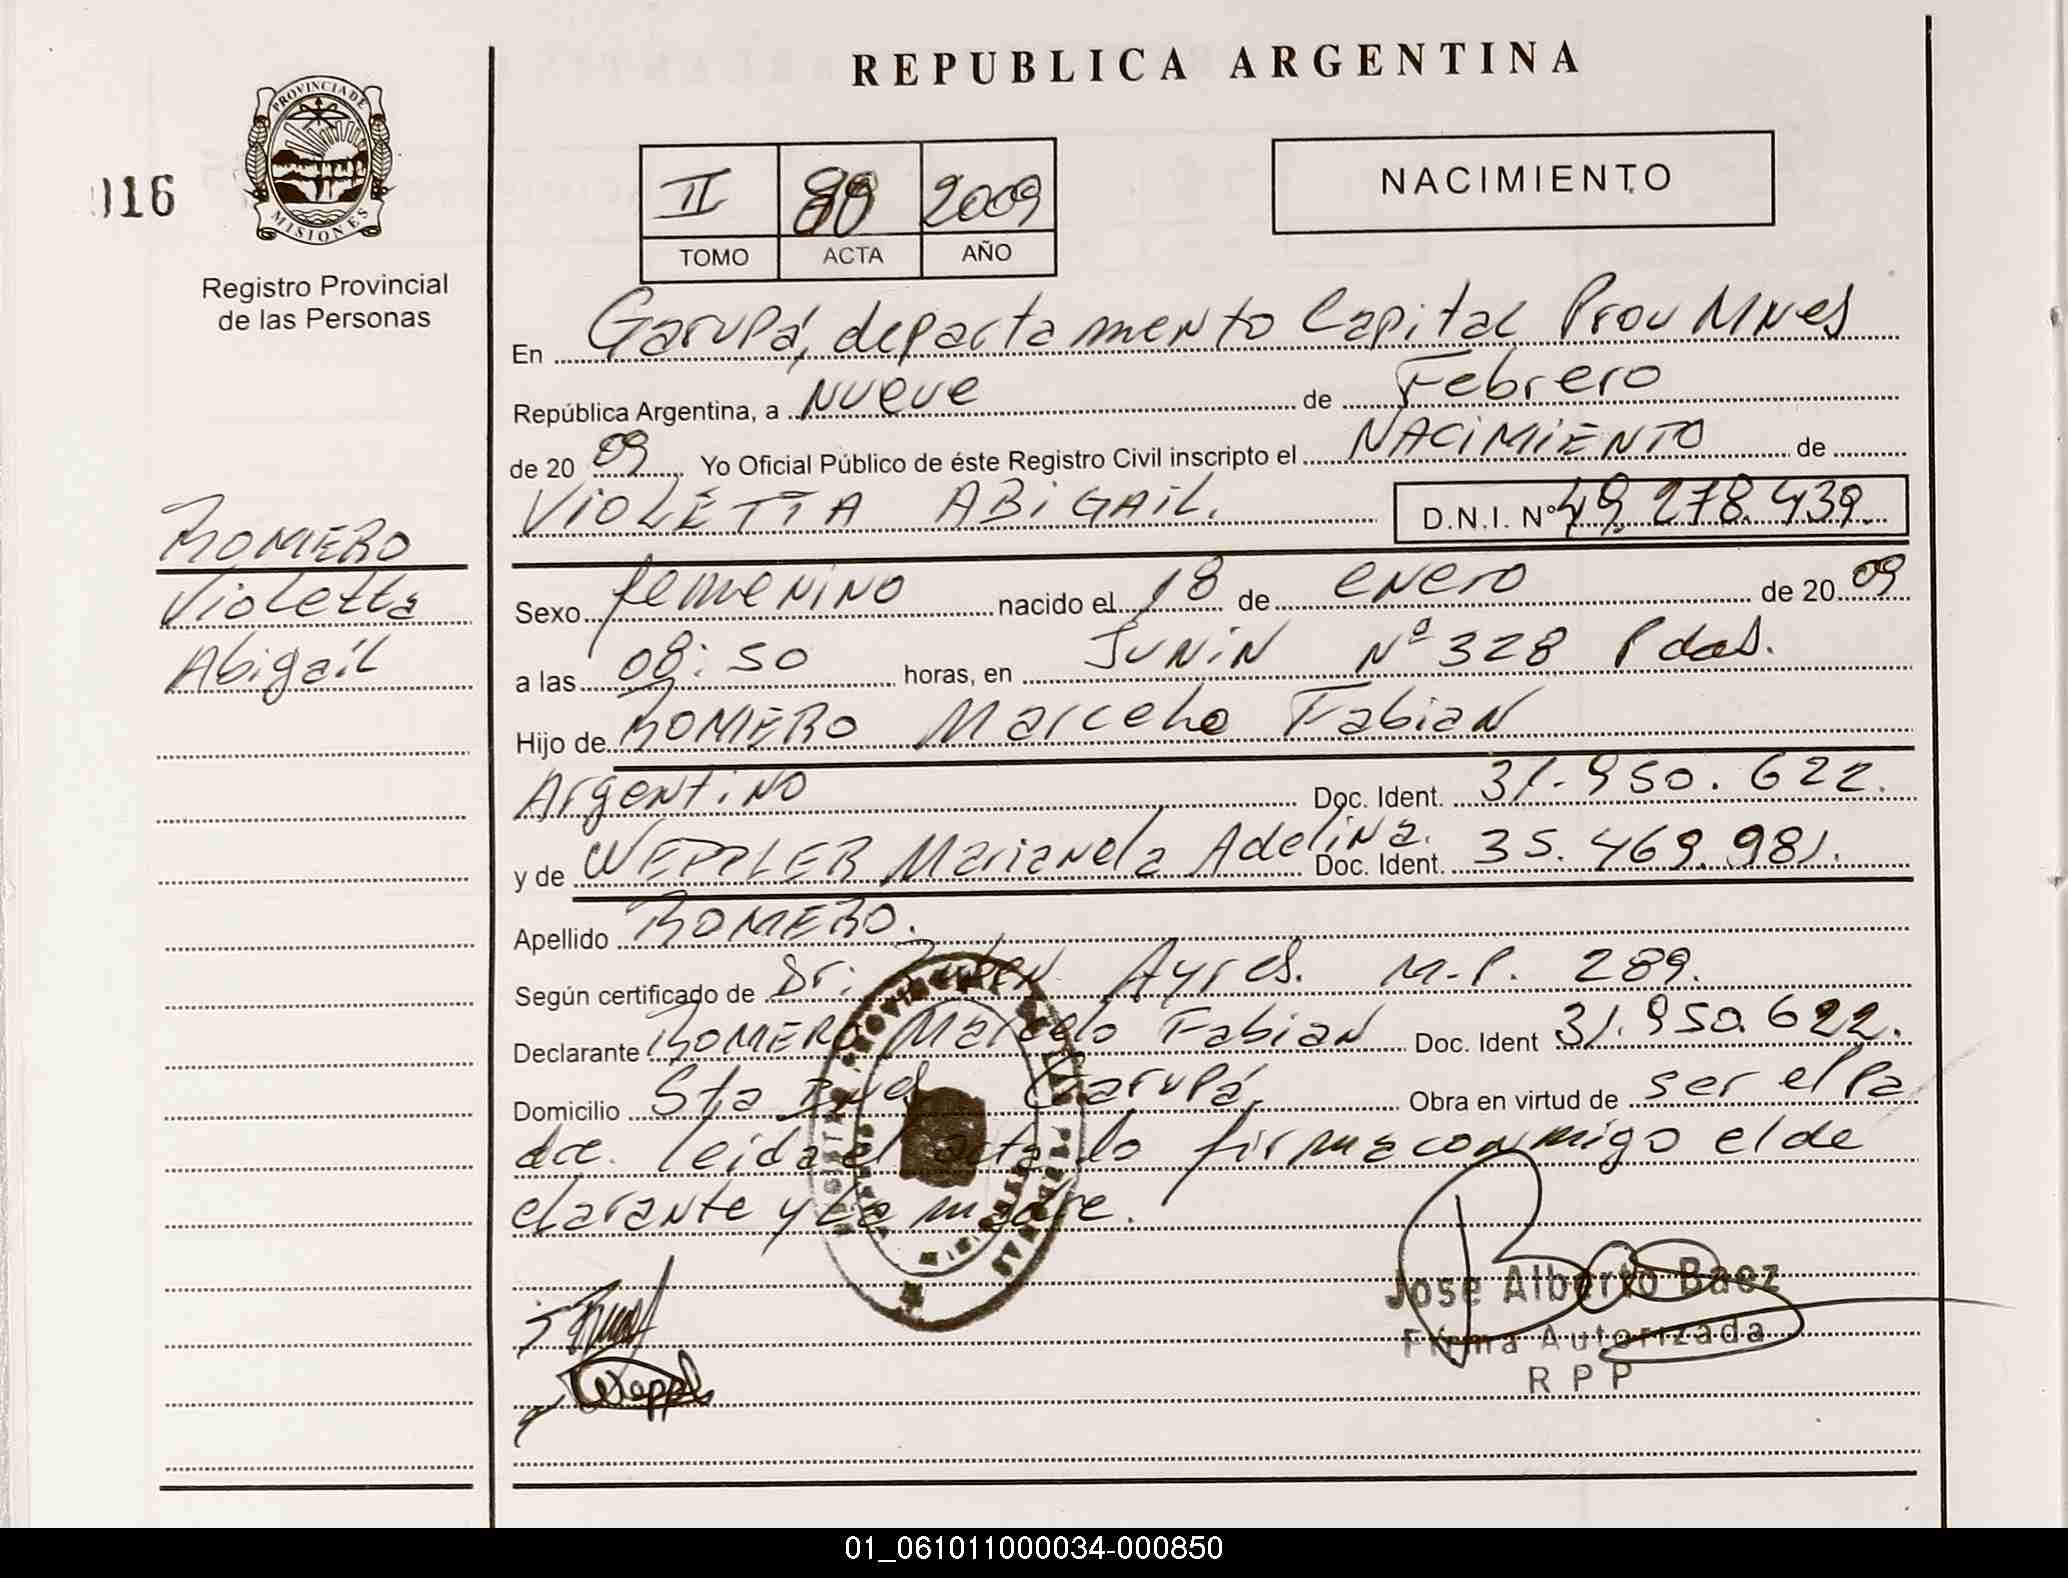 REPUBLICA ARGENTINA
PROVINCIA DE
MISIONES
016
Registro Provincial
de las Personas
II 2009
TOMO ACTA AÑO
NACIMIENTO
En Garupá, departamento Capital Prov Mnes
República Argentina, a Nueve de Febrero
de 20 09 Yo Oficial Público de éste Registro Civil inscripto el NACIMIENTO de
VIOLETTA ABIGAIL. D.N.I. Nº 49.278.439.
ROMERO
Violetta
Abigail
Sexo femenino nacido el 18 de enero de 20 09
a las 08:50 horas, en Junin Nº 328 Pdas.
Hijo de ROMERO Marcelo Fabian
Argentino Doc. Ident. 31.950.622.
y de WEPPLER Marianela Adelina. Doc. Ident. 35.469.981.
Apellido ROMERO.
Según certificado de Dr. Ayres. M.P. 289.
Declarante ROMERO Marcelo Fabian Doc. Ident 31.950.622.
Domicilio Sta Ines Garupá. Obra en virtud de ser el Pa
dre. leida el acta lo firma conmigo el de
clarante y la madre.
Jose Alberto Baez
Firma Autorizada
R P P
01_061011000034-000850